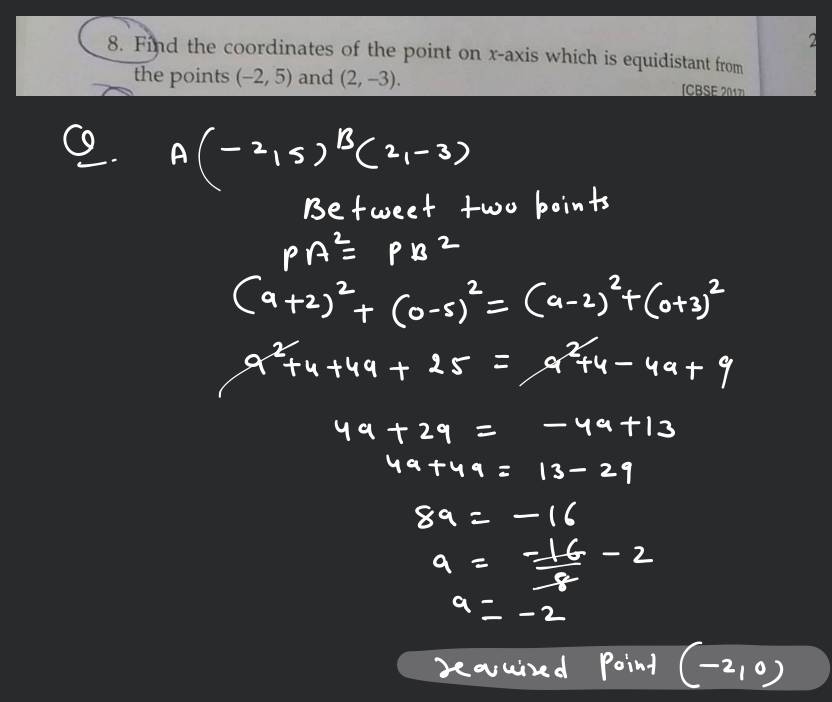 8. Find the coordinates of the point on x-axis which is equidistant from
the points (–2, 5) and (2, –3).
[CBSE 2017]
2
Q. A(-2,5) B(2,-3)
Betweet two points
PA² = PB²
(a+2)² + (0-5)² = (a-2)² + (0+3)²
a²+4+4a+25 = a²+4-4a+9
4a+29 = -4a+13
4a+4a = 13-29
8a = -16
a = -16/8 - 2
a = -2
required Point (-2,0)